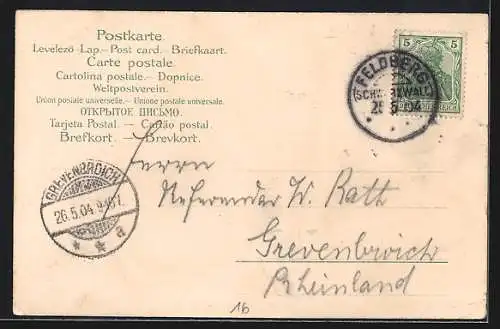 Postkarte.
Levelező-Lap.–Post card.–Briefkaart.
Carte postale.
Cartolina postale.–Dopnice.
Weltpostverein.
Union postale universelle.–Unione postale universale.
ОТКРЫТОЕ ПИСЬМО.
Tarjeta Postal.–Cartão postal.
Brefkort.–Brevkort.
5 5
FELDBERG
(SCHWARZWALD)
25 5 04
GREVENBROICH
26.5.04.
a
Herrn
W. Rath
Grevenbroich
Rheinland
16